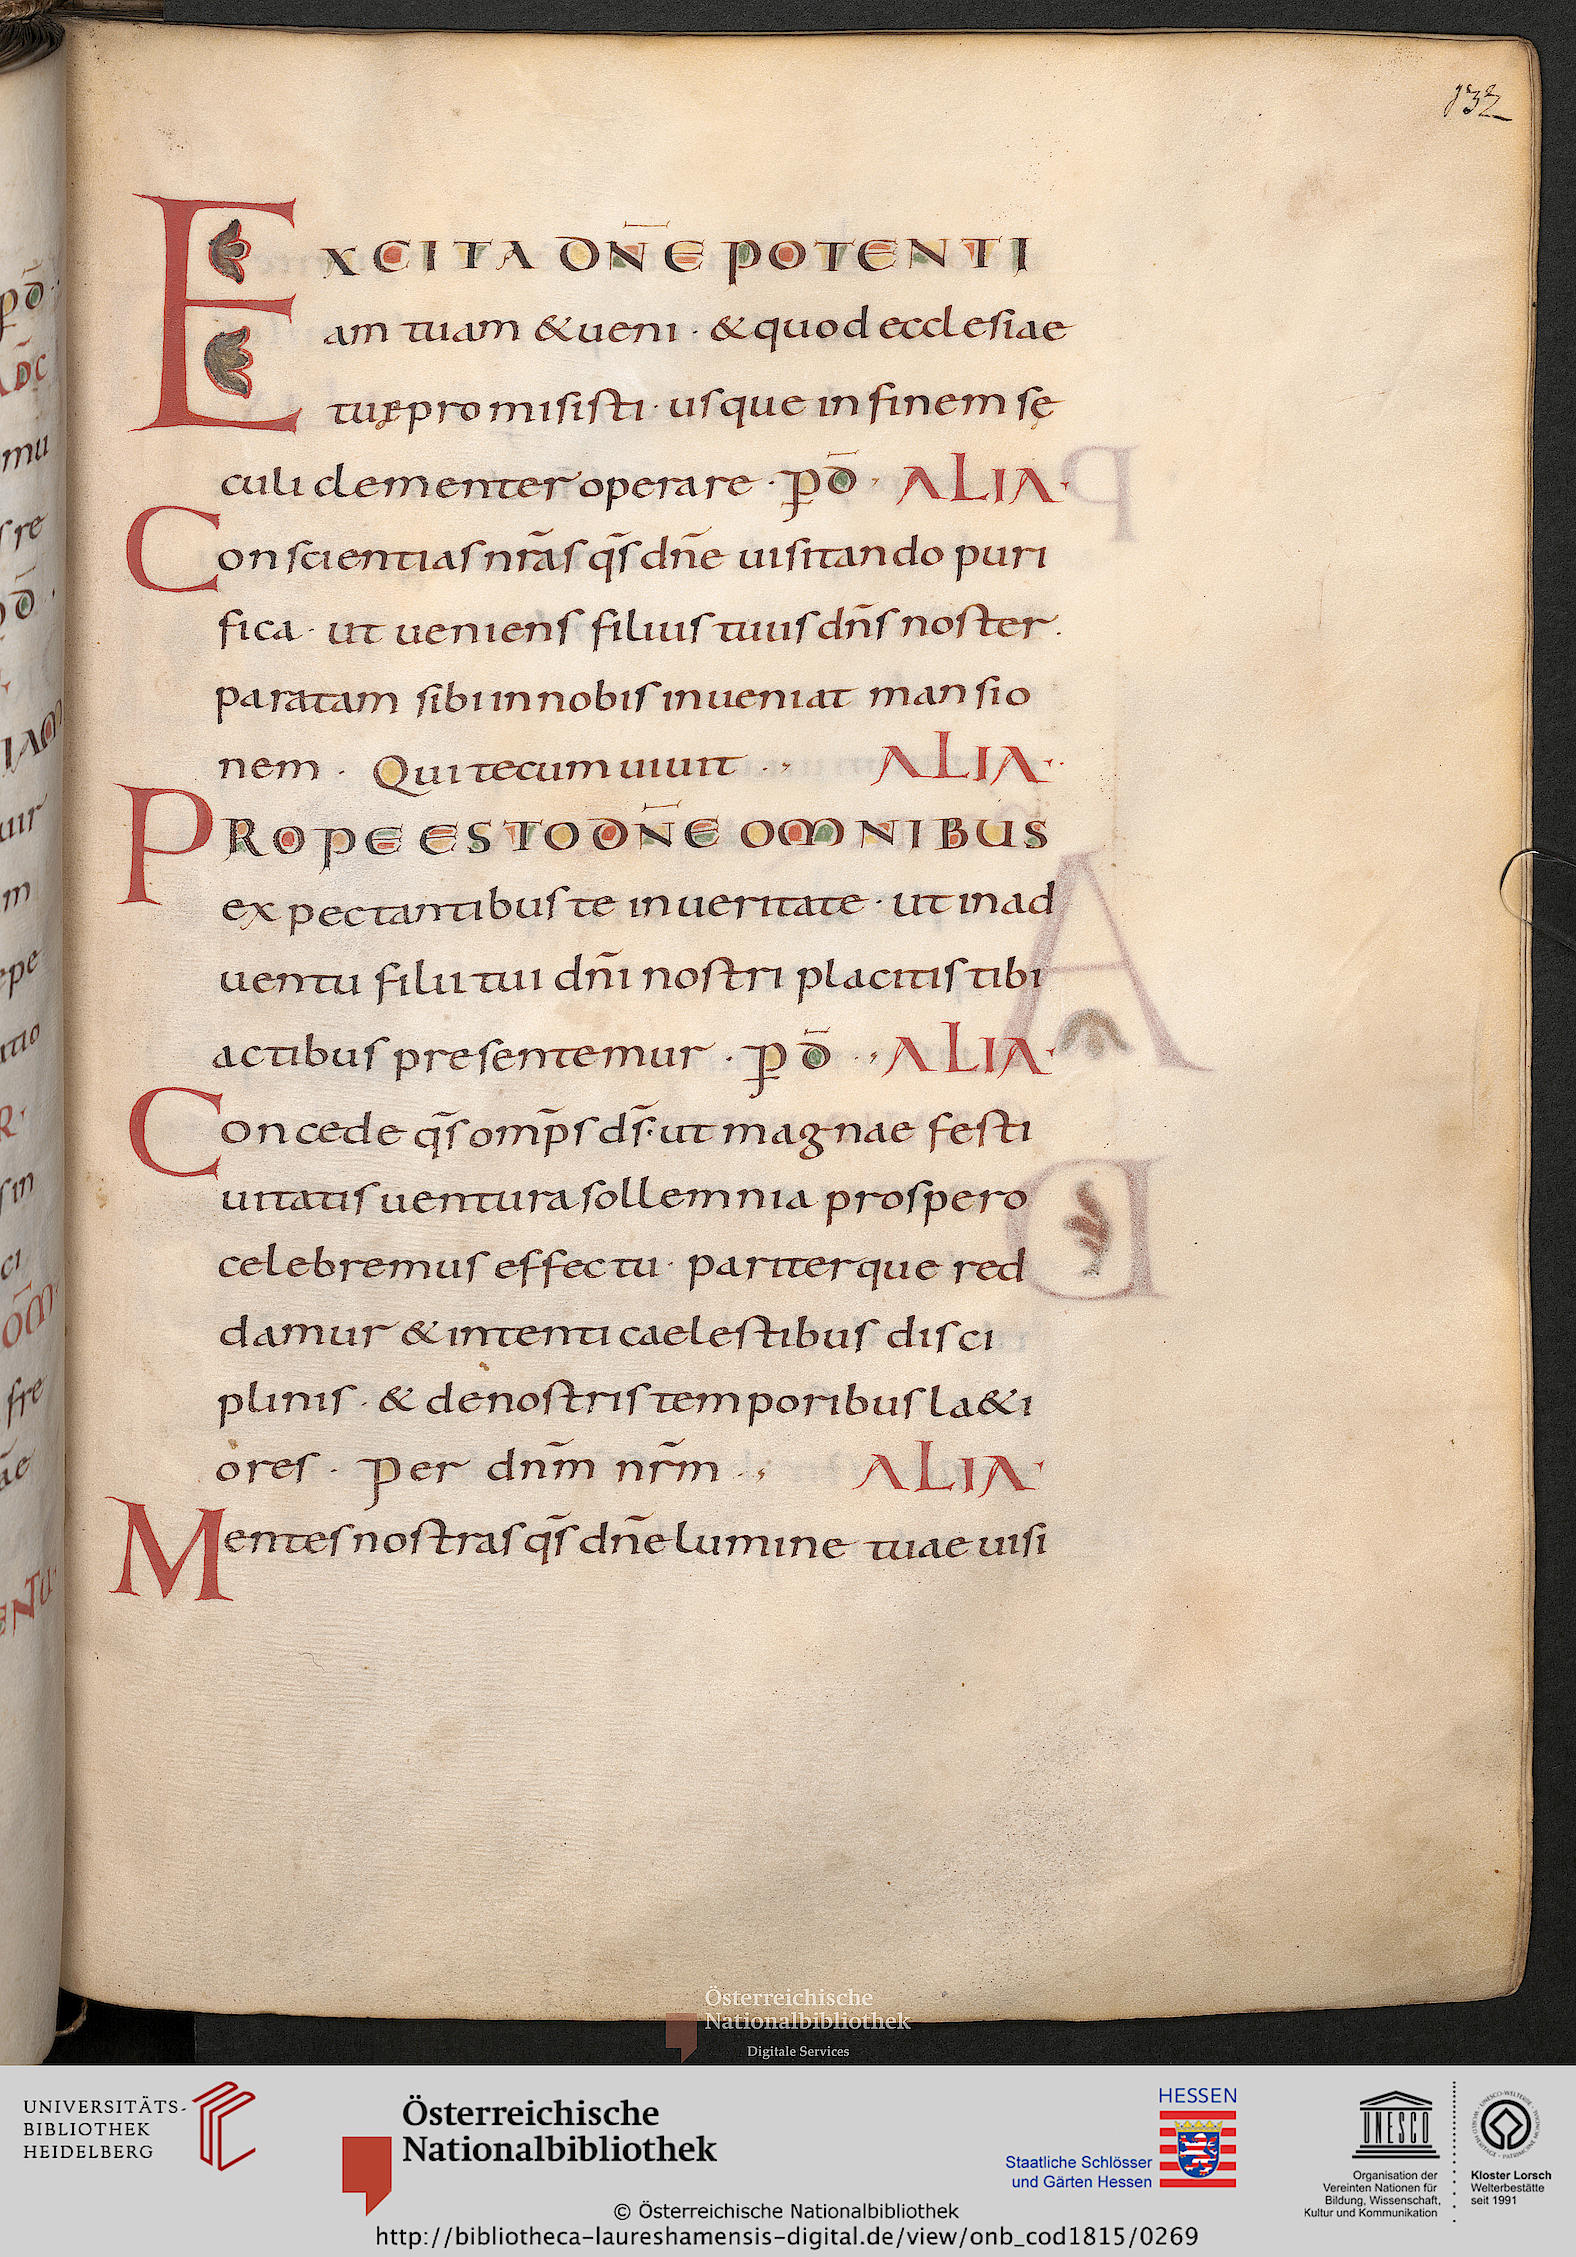 132
EXCITA DN̄E POTENTI
am tuam & ueni · & quod ecclesiae
tuę promisisti · usque in finem sę
culi clementer operare · p̄d̄ · ALIA·
Conscientias nr̄as qs̄ dn̄e uisitando puri
fica · ut ueniens filius tuus dn̄s noster .
paratam sibi in nobis inueniat mansio
nem · Qui tecum uiuit · ALIA·
PROPE ESTO DN̄E OMNIBUS
expectantibus te in ueritate · ut in ad
uentu filii tui dn̄i nostri placitis tibi
actibus presentemur · p̄d̄ · ALIA·
Concede qs̄ omp̄s ds̄· ut magnae festi
uitatis uentura sollemnia prospero
celebremus effectu · pariterque red
damur & intenti caelestibus disci
plinis · & de nostris temporibus la&i
ores · Per dnm̄ nrm̄ · ALIA·
Mentes nostras qs̄ dn̄e lumine tuae uisi
Österreichische
Nationalbibliothek
Digitale Services
UNIVERSITÄTS-
BIBLIOTHEK
HEIDELBERG
Österreichische
Nationalbibliothek
HESSEN
Staatliche Schlösser
und Gärten Hessen
UNESCO
Organisation der
Vereinten Nationen für
Bildung, Wissenschaft,
Kultur und Kommunikation
Kloster Lorsch
Welterbestätte
seit 1991
© Österreichische Nationalbibliothek
http://bibliotheca-laureshamensis-digital.de/view/onb_cod1815/0269